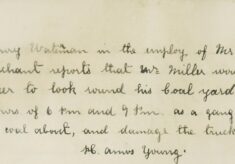 nory Wateman in the employ of Mr
chant reports that Mr Miller wou
er to look round his Coal yard
urs of 6 pm and 9 pm. as a gang
coal about, and damage the truck
P.C. Amos Young.